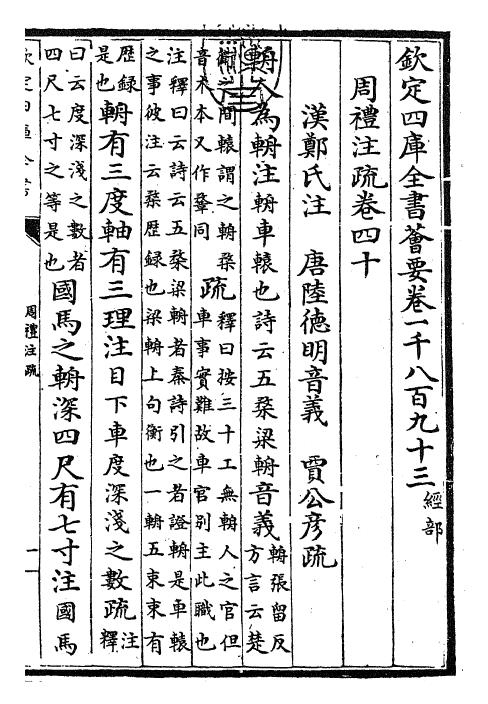 欽定四庫全書薈要卷一千八百九十三經部
周禮注疏卷四十
漢鄭氏注　唐陸德明音義　賈公彥疏
輈人為輈注輈車轅也詩云五楘梁輈音義輈張留反
方言云楚
衛之間轅謂之輈楘
音木本又作鞪同
疏釋曰按三十工無輈人之官但
車事實難故車官別主此職也
注釋曰云詩云五楘梁輈者秦詩引之者證輈是車轅
之事彼注云楘歷録也梁輈上句衡也一輈五束束有
歴録
是也
輈有三度軸有三理注目下車度深淺之數疏注
釋
曰云度深淺之數者
四尺七寸之等是也
國馬之輈深四尺有七寸注國馬
周禮注疏
一